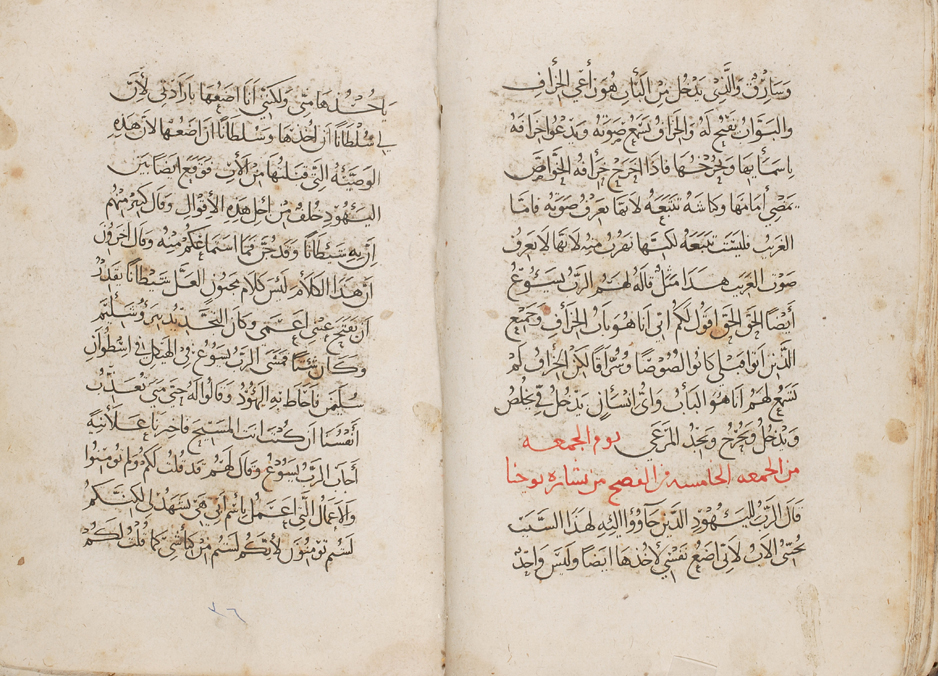 وسارق والذي يدخل من الباب هو راعي الخراف
والبواب يفتح له والخراف تسمع صوته ويدعوا خرافه
باسمايها ويخرجها فاذا اخرج خرافه الخواص
يمضي أمامها وكباشه تتبعه لانها تعرف صوته فاما
الغريب فليست تتبعه لكنها تفرب منه لانها لا تعرف
صوت الغريب هذا مثل قاله لهم الرب يسوع
أيضا الحق الحق اقول لكم اني انا هو باب الخراف وجميع
الذين اتوا قبلي كانوا لصوصا وسراقا لكن الخراف لم
تسمع لهم انا هو الباب واي انسان يدخل في يخلص
ويدخل ويخرج ويجد المرعي يوم الجمعه
من الجمعه الخامسه من الفصح من بشارة يوحنا
قال الرب لليهود الذين جاووا اليه لهذا السبب
يحبني الاب لاني اضع نفسي لأخذها ايضا وليس واحد
ياخذها مني ولكني أنا اضعها بارادتي لأن
لي سلطانا ان اخذها وسلطانا ان اضعها لان هذه
الوصية التي قبلتها من الأب فوقع ايضا بين
اليهود خلف من اجل هذه الأقوال وقال كثير منهم
ان به شيطانا وقد جن فما استماعكم منه وقال اخرون
ان هذا الكلام ليس كلام مجنون لعل شيطانا يقدر
ان يفتح عيني اعمى وكان التجديد بيروشليم
وكان شتئا فمشى الرب يسوع في الهيكل في اسطوان
سليمن فأحاط به اليهود وقالوا له حتى متى تعذب
انفسنا ان كنت انت المسيح فاخبرنا علانية
أجاب الرب يسوع وقال لهم قد قلت لكم ولم تومنوا
والاعمال التي اعمل باسم ابي هي تشهد لي لكنكم
لستم تومنون لأنكم لستم من كباشي كما قلت لكم
٧٦